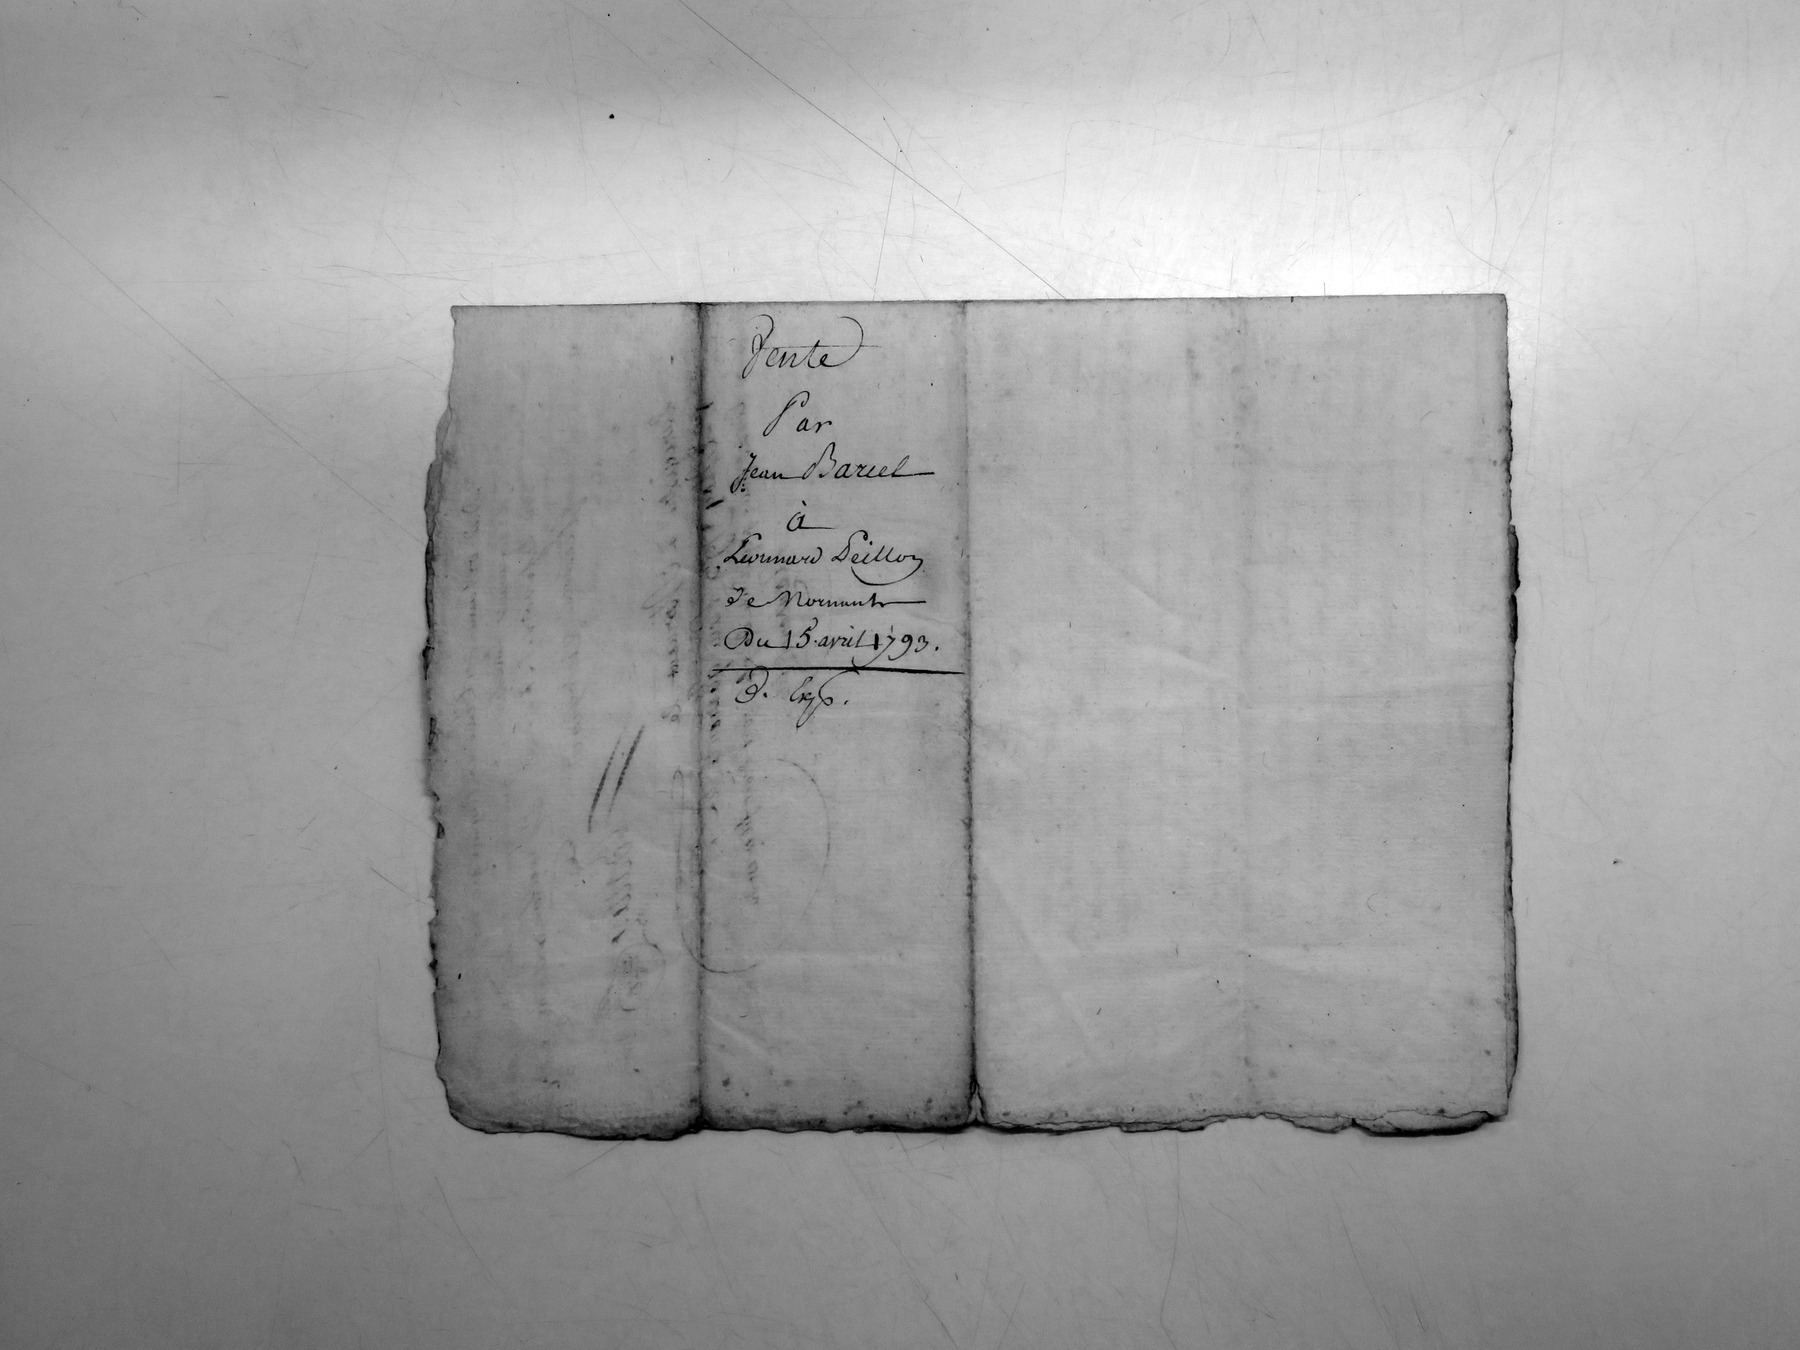 Vente
Par
Jean Barcel
à
Leonnard Peillon
de Mornant
Du 15 avril 1793.
d. Exp.